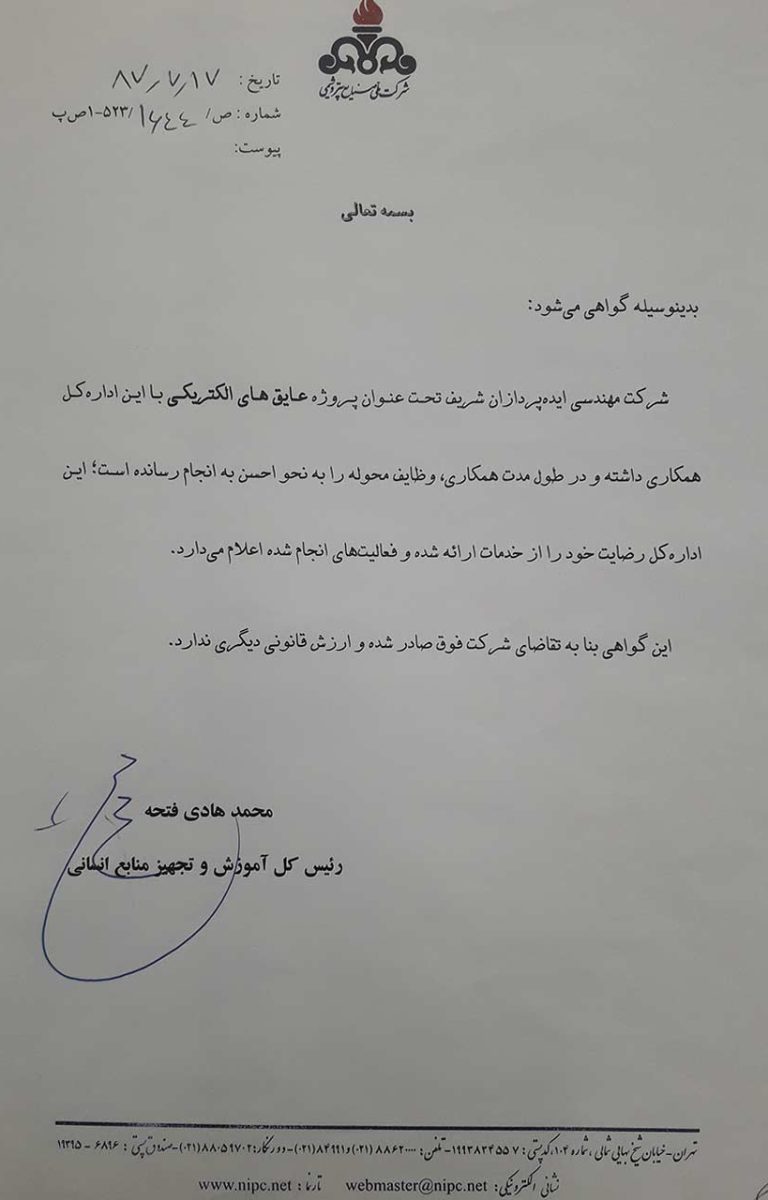 شرکت ملی صنایع پتروشیمی
تاریخ: ۸۷٫۷٫۱۷
شماره: ص/ ۱۶۴۴/۵۲۳-۱ص‌پ
پیوست:
بسمه تعالی
بدینوسیله گواهی می‌شود:
شرکت مهندسی ایده‌پردازان شریف تحت عنوان پروژه عایق های الکتریکی با این اداره‌کل
همکاری داشته و در طول مدت همکاری، وظایف محوله را به نحو احسن به انجام رسانده است؛ این
اداره‌کل رضایت خود را از خدمات ارائه شده و فعالیت‌های انجام شده اعلام می‌دارد.
این گواهی بنا به تقاضای شرکت فوق صادر شده و ارزش قانونی دیگری ندارد.
محمد هادی فتحه
رئیس کل آموزش و تجهیز منابع انسانی
تهران-خیابان شیخ بهایی شمالی، شماره ۱۰۴، کدپستی: ۱۹۹۳۸۳۴۵۵۷-تلفن: ۸۸۶۲۰۰۰۰ (۰۲۱) و ۸۴۹۹۱(۰۲۱)-دورنگار: ۸۸۰۵۹۷۰۲(۰۲۱)-صندوق پستی: ۶۸۹۶ - ۱۹۳۹۵
نشانی الکترونیکی: webmaster@nipc.net تارنما: www.nipc.net